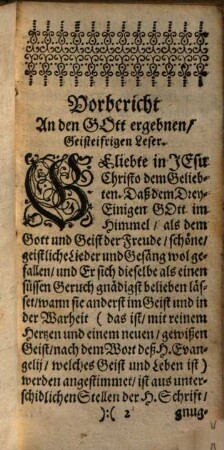 Vorbericht
An den GOtt ergebnen/
Geisteifrigen Leser.
GEliebte in JEsu
Christo dem Gelieb-
ten. Daß dem Drey-
Einigen GOtt im
Himmel / als dem
Gott und Geist der Freude / schöne /
geistliche Lieder und Gesäng wol ge-
fallen / und Er sich dieselbe als einen
süssen Geruch gnädigst belieben läs-
set / wann sie anderst im Geist und in
der Warheit ( das ist / mit reinem
Hertzen und einem neuen / gewißen
Geist / nach dem Wort deß H. Evan-
gelij / welches Geist und Leben ist )
werden angestimmet / ist aus unter-
schidlichen Stellen der H. Schrift /
):( 2 gnug-